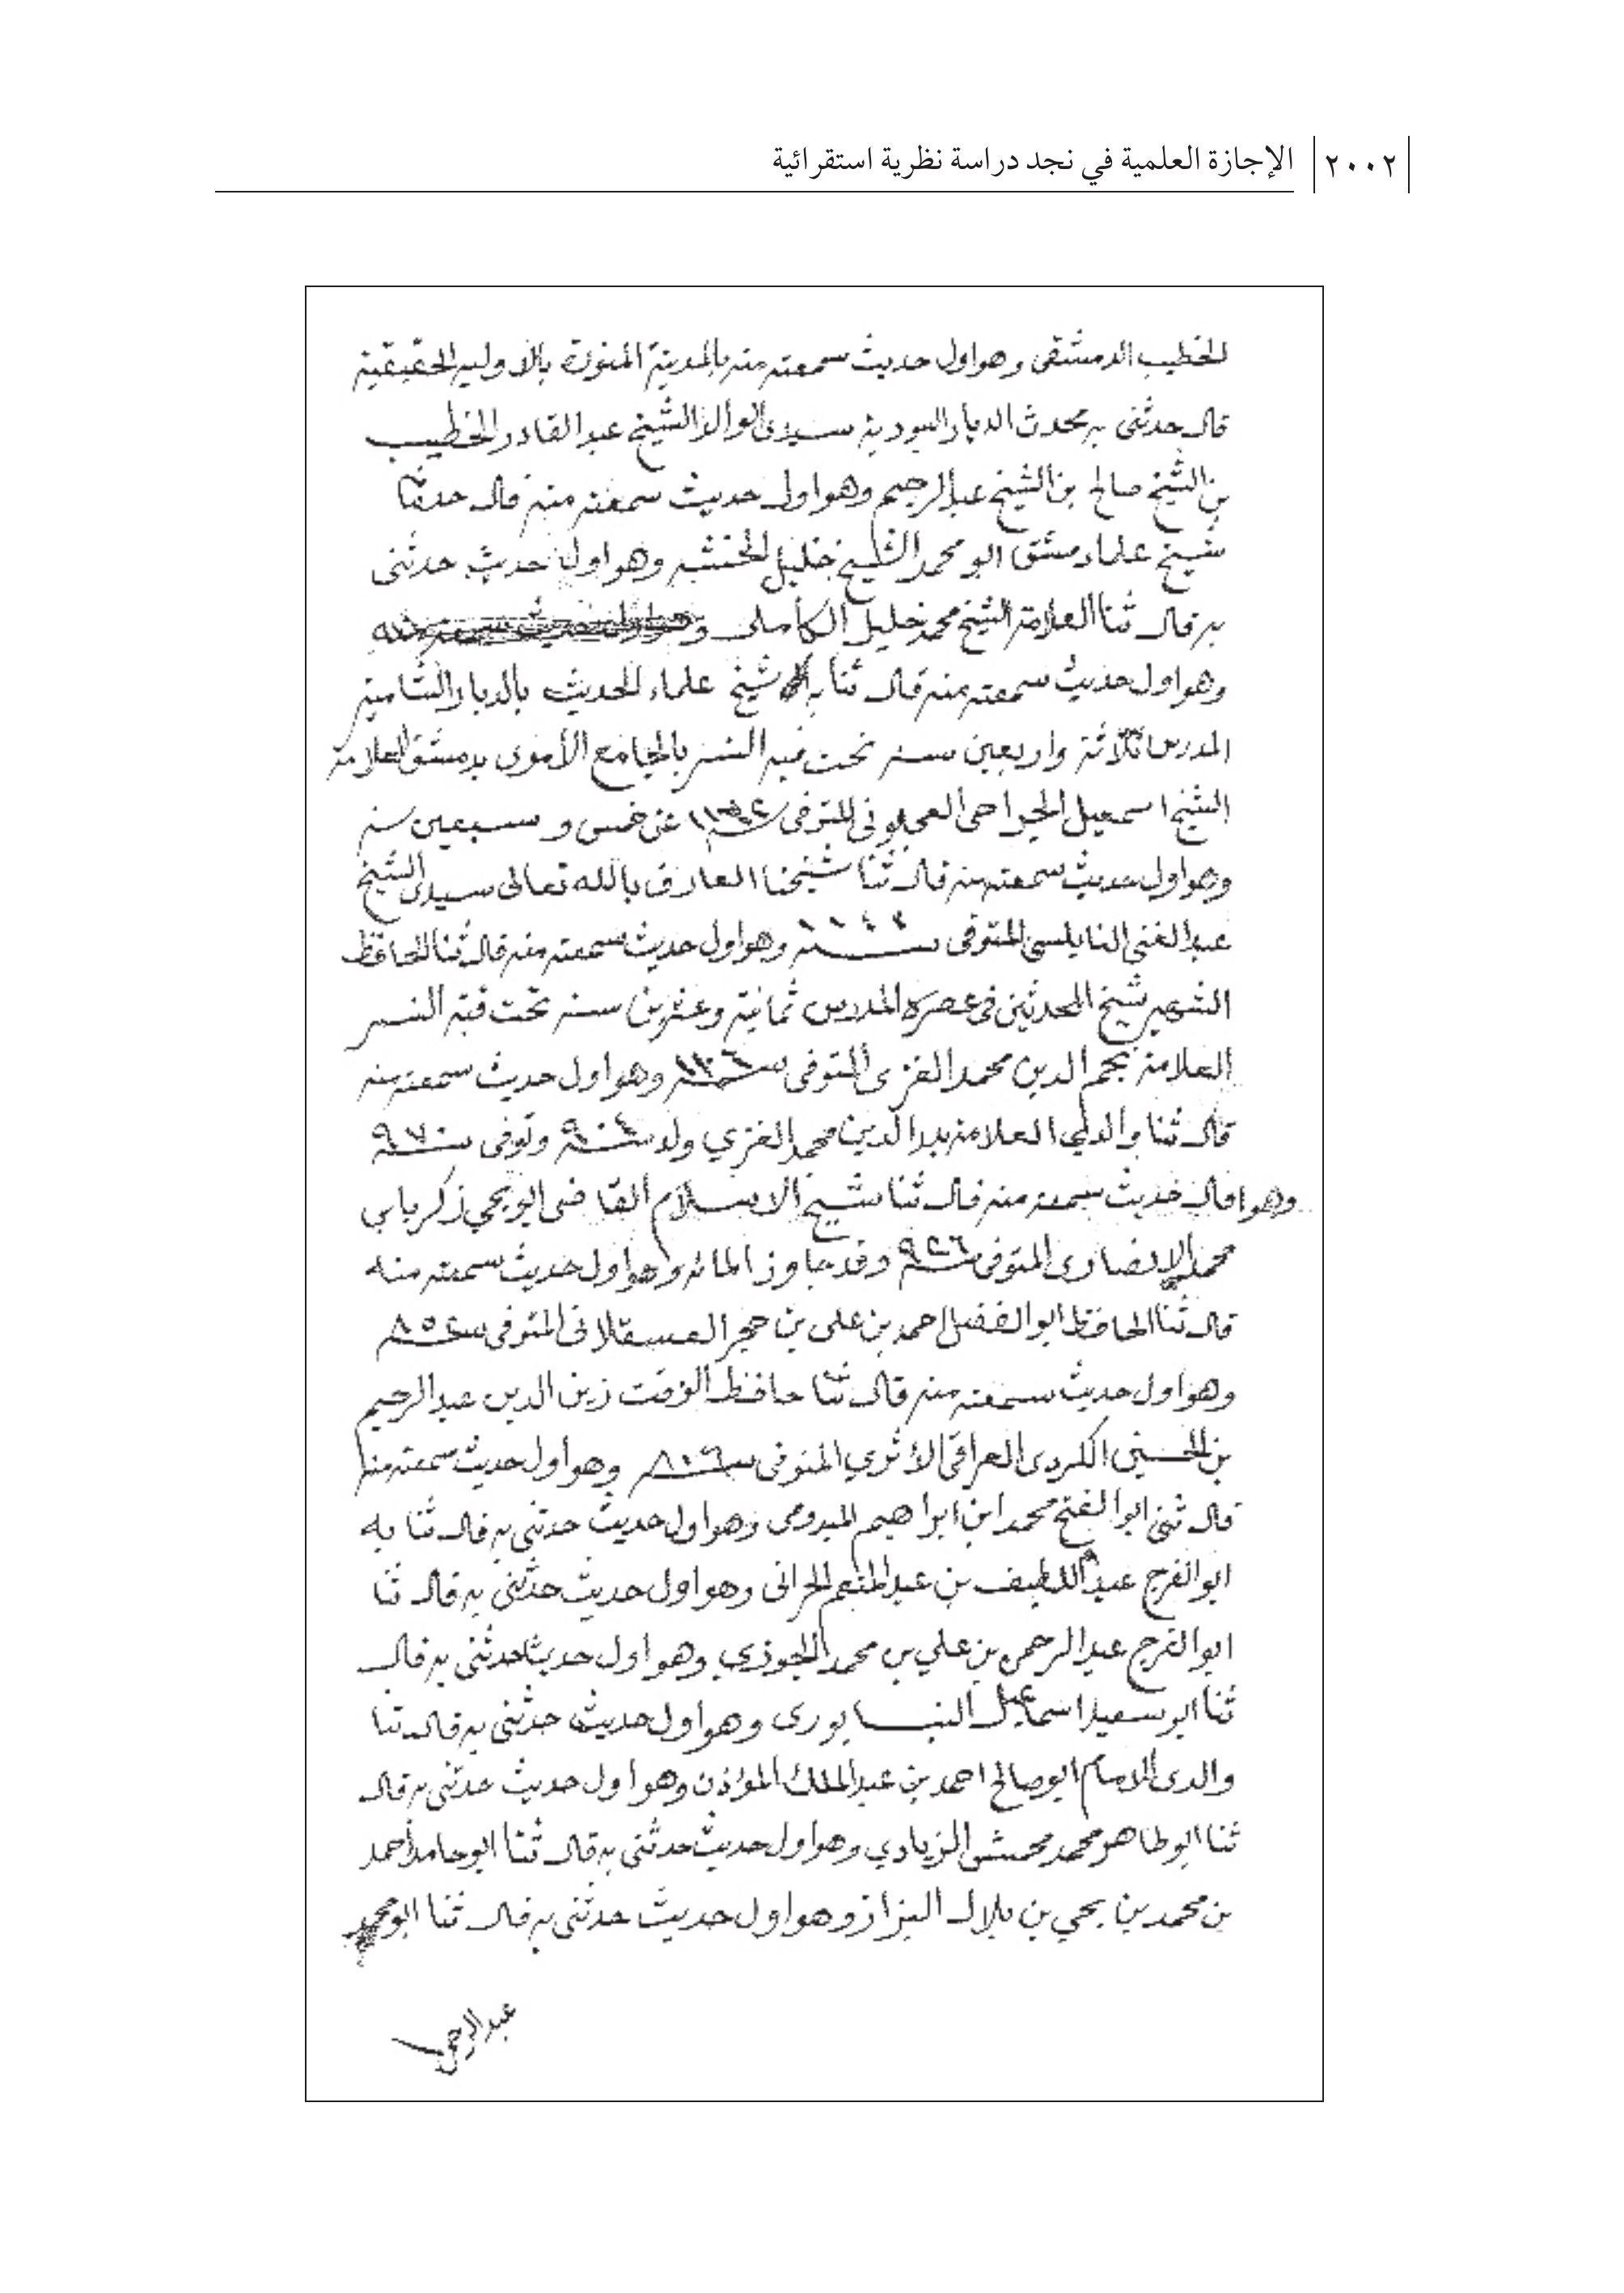 ٢٠٠٢ الإجازة العلمية في نجد دراسة نظرية استقرائية
الخطيب الدمشقى وهو اول حديث سمعته منه بالمدينة المنورة بالاوليه الحقيقية
قال حدثنى به محدث الديار السورية سيدى الوالد الشيخ عبد القادر الخطيب
بن الشيخ صالح بن الشيخ عبد الرحيم وهو اول حديث سمعته منه قال حدثنا
شيخ علماء دمشق ابو محمد الشيخ خليل الخشه وهو اول حديث حدثنى
به قال ثنا العلامة الشيخ محمد خليل الكأملى
وهو اول حديث سمعته منه قال ثنا به شيخ علماء الحديث بالديار الشامية
المدرس ثلاثة واربعين سنه تحت قبه النسر بالجامع الأموى بدمشق العلامه
الشيخ اسمعيل الجراحى العجلونى المتوفى عن خمس وسبعين سنه
وهو اول حديث سمعته منه قال ثنا شيخنا العارف بالله تعالى سيدى الشيخ
عبد الغنى النابلسى المتوفى وهو اول حديث سمعته منه قال ثنا الحافظ
الشهير شيخ المحدثين فى عصره المدرس ثمانية وعشرين سنه تحت قبة النسر
العلامة نجم الدين محمد الغزى المتوفى وهو اول حديث سمعته منه
قال ثنا والدي العلامة بدر الدين محمد الغزي ولد وتوفى
وهو اول حديث سمعته منه قال ثنا شيخ الاسلام القاضى ابو يحي زكريا بن
محمد الانصارى المتوفى سنة ٩٢٦ وقد جاوز المائه وهو اول حديث سمعته منه
قال ثنا الحافظ ابو الفضل احمد بن على بن حجر العسقلانى المتوفى سنة ٨٥٢
وهو اول حديث سمعته منه قال ثنا حافظ الوقت زين الدين عبد الرحيم
بن الحسين الكردى العراقى الأثري المتوفى سنة ٨٠٦ وهو أول حديث سمعته منه
قال ثنى ابو الفتح محمد ابن ابراهيم الميدومى وهو اول حديث حدثنى به قال ثنا به
ابو الفرج عبد اللطيف بن عبد المنعم الحرانى وهو اول حديث حدثنى به قال ثنا
ابو الفرج عبد الرحمن بن علي بن محمد الجوزي وهو اول حديث حدثنى به قال
ثنا ابو سعيد اسماعيل النيسابورى وهو أول حديث حدثنى به قال ثنا
والدى الامام ابو صالح احمد بن عبد الملك المؤذن وهو اول حديث حدثنى به قال
ثنا ابو طاهر محمد محمش الزيادي وهو اول حديث حدثنى به قال ثنا ابو حامد أحمد
بن محمد بن يحي بن بلال البزاز وهو اول حديث حدثنى به قال ثنا ابو محمد
عبد الرحمن